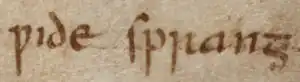 ƿide ſprang